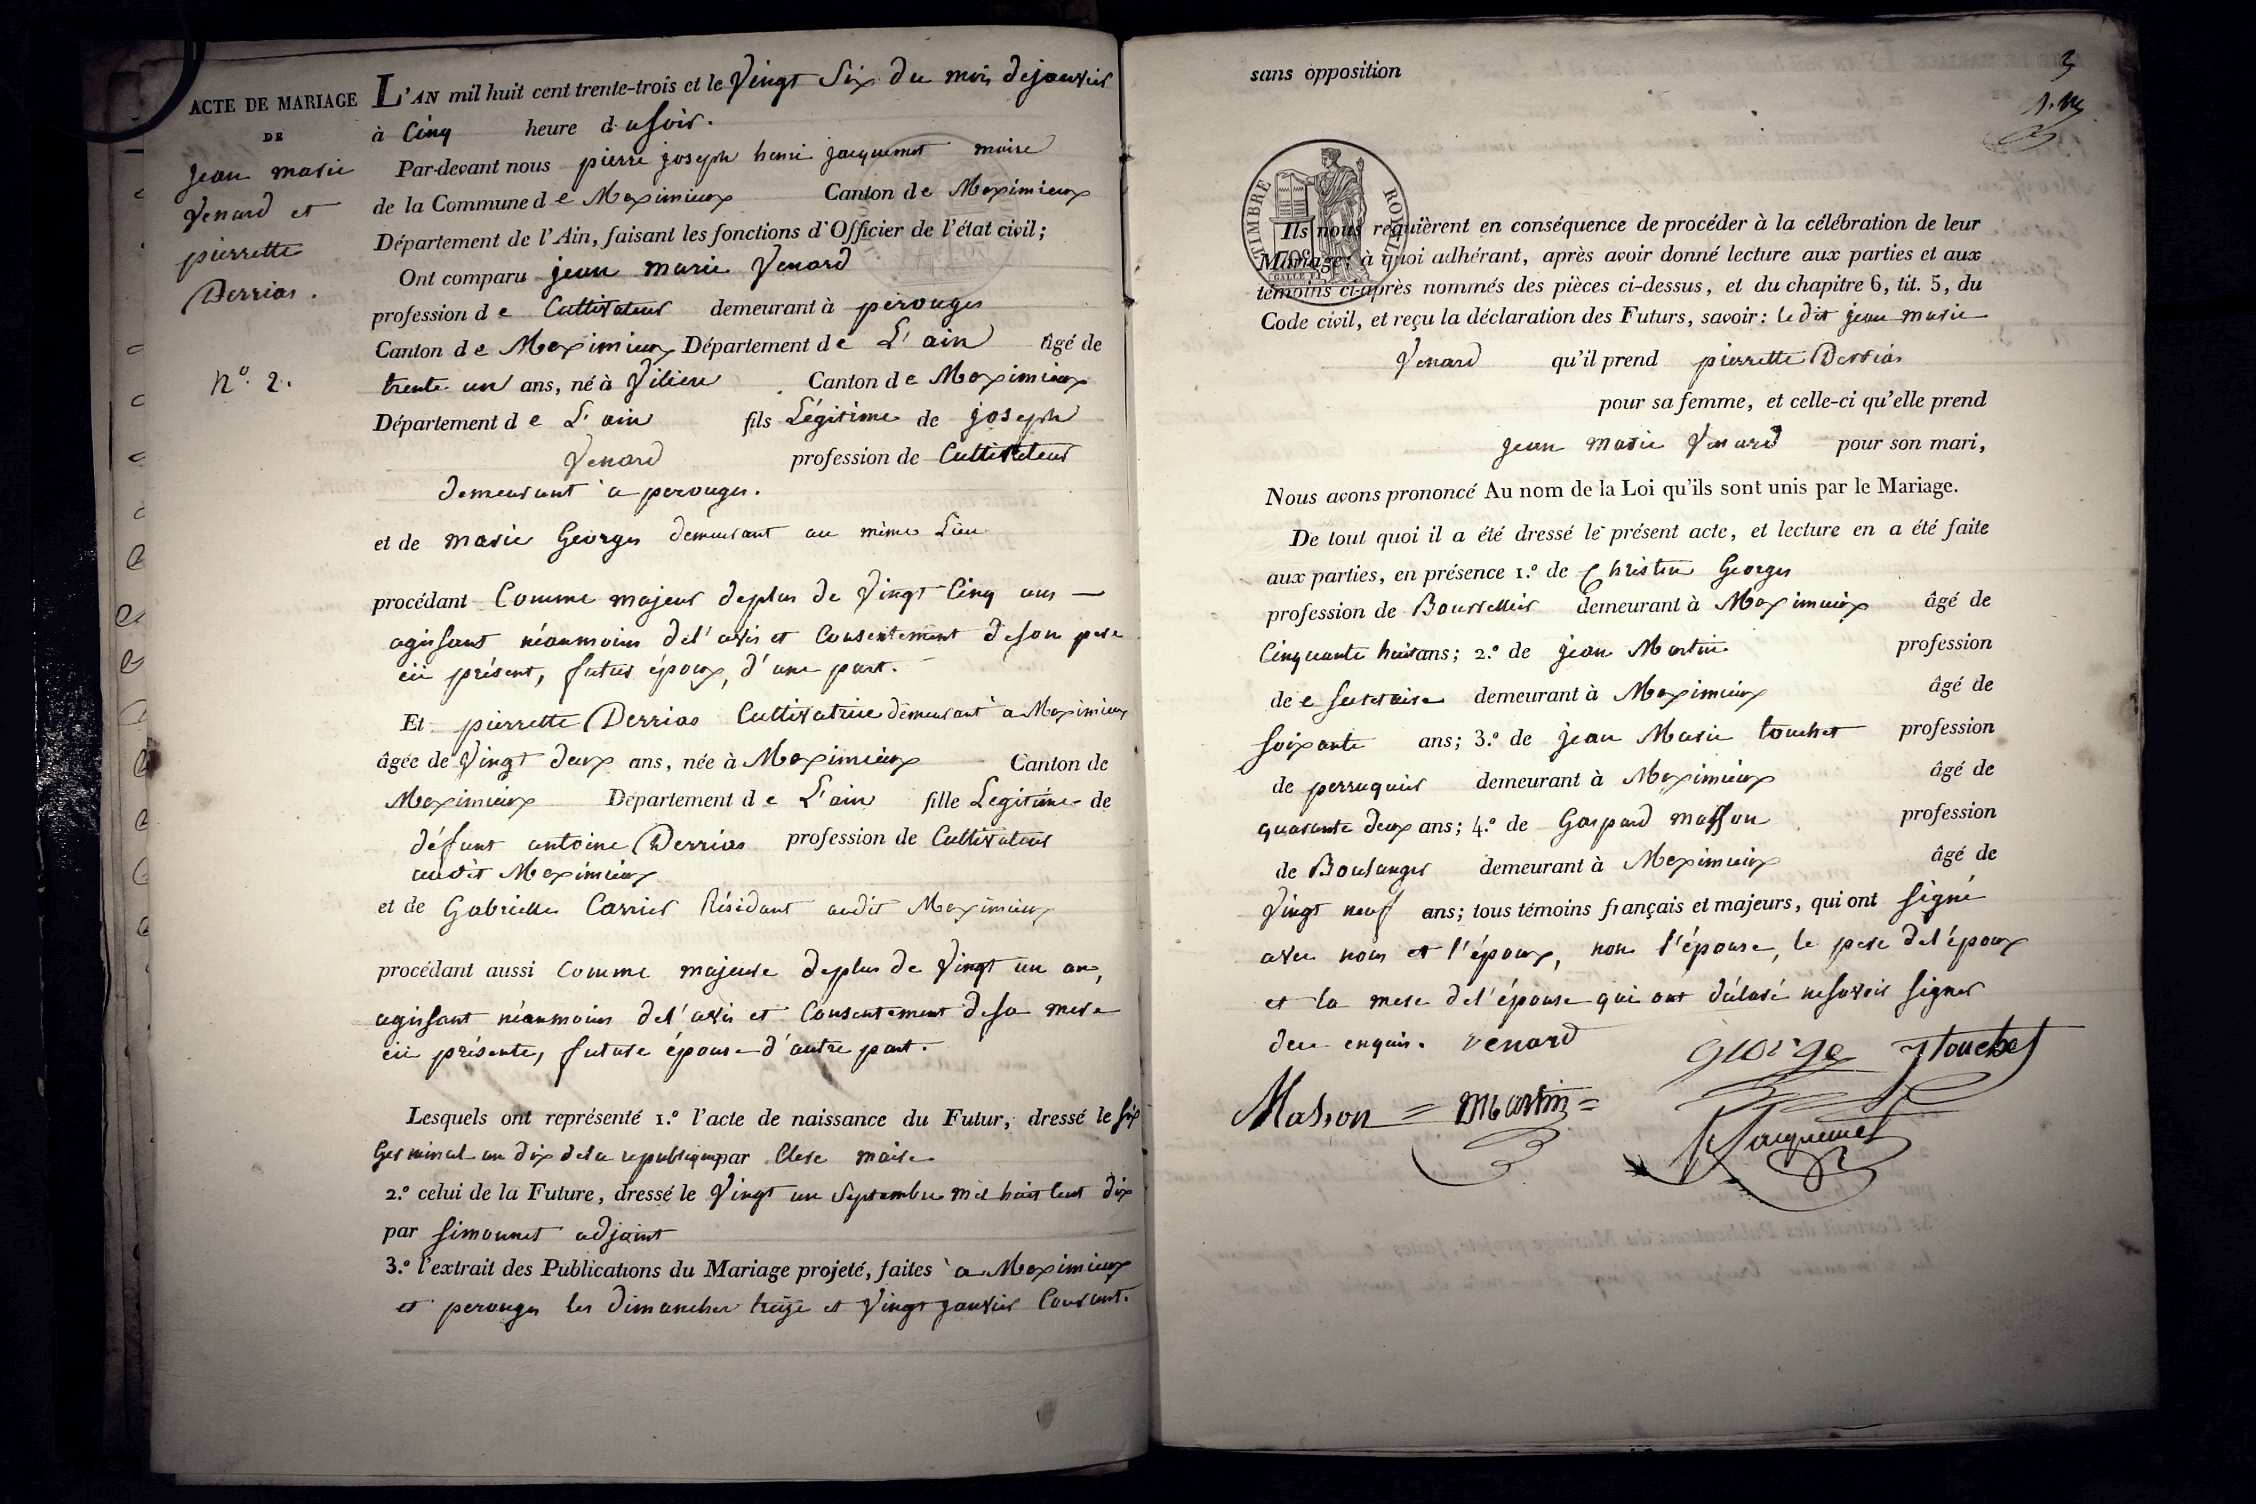 ACTE DE MARIAGE
DE
jean marie
Venard et
pierrette
Derrias.
n.º 2.
L'AN mil huit cent trente-trois et le Vingt Six du mois de janvier
à Cinq heure du soir.
Par-devant nous pierre joseph henri jacquemet maire
de la Commune de Meximieux Canton de Meximieux
Département de l'Ain, faisant les fonctions d'Officier de l'état civil;
Ont comparu jean marie Venard
profession de Cultivateur demeurant à perouges
Canton de Meximieux Département de L'ain âgé de
trente un ans, né à Vilieu Canton de Meximieux
Département de L'ain fils Légitime de joseph
Venard profession de Cultivateur
demeurant à perouges.
et de marie Georges demeurant au même Lieu
procédant Comme majeur de plus de Vingt Cinq ans —
agissant néanmoins de l'avis et Consentement de son pere
ici présent, futur époux, d'une part.
Et pierrette Derrias Cultivatrice demeurant à Meximieux
âgée de Vingt deux ans, née à Meximieux Canton de
Meximieux Département de L'ain fille Légitime de
défunt antoine Derrias profession de Cultivateur
audit Meximieux
et de Gabrielle Carrier Résidant audit Meximieux
procédant aussi Comme majeure de plus de Vingt un an,
agissant néanmoins de l'avis et Consentement de sa mere
ici présente, future épouse d'autre part.
Lesquels ont représenté 1.º l'acte de naissance du Futur, dressé le six
Germinal an dix de la republique par Clere maire
2.º celui de la Future, dressé le Vingt un Septembre mil huit Cent dix
par Simonnet adjoint
3.º l'extrait des Publications du Mariage projeté, faites à Meximieux
et perouges les dimanches treize et Vingt janvier Courant.
3
sans opposition
TIMBRE ROYAL
Ils nous requièrent en conséquence de procéder à la célébration de leur
Mariage; à quoi adhérant, après avoir donné lecture aux parties et aux
témoins ci-après nommés des pièces ci-dessus, et du chapitre 6, tit. 5, du
Code civil, et reçu la déclaration des Futurs, savoir: le dit jean marie
Venard qu'il prend pierrette Derrias
pour sa femme, et celle-ci qu'elle prend
jean marie Venard pour son mari,
Nous avons prononcé Au nom de la Loi qu'ils sont unis par le Mariage.
De tout quoi il a été dressé le présent acte, et lecture en a été faite
aux parties, en présence 1.º de Christin Georges
profession de Bourrellier demeurant à Meximieux âgé de
Cinquante huit ans; 2.º de jean Martin profession
de secretaire demeurant à Meximieux âgé de
soixante ans; 3.º de jean Marie touchet profession
de perruquier demeurant à Meximieux âgé de
quarante deux ans; 4.º de Gaspard masson profession
de Boulanger demeurant à Meximieux âgé de
Vingt neuf ans; tous témoins français et majeurs, qui ont signé
avec nous et l'époux, non l'épouse, le pere de l'époux
et la mere de l'épouse qui ont déclaré ne savoir signer
de ce enquis. venard
George Jtouchet
Masson = Martin =
Jacquemet